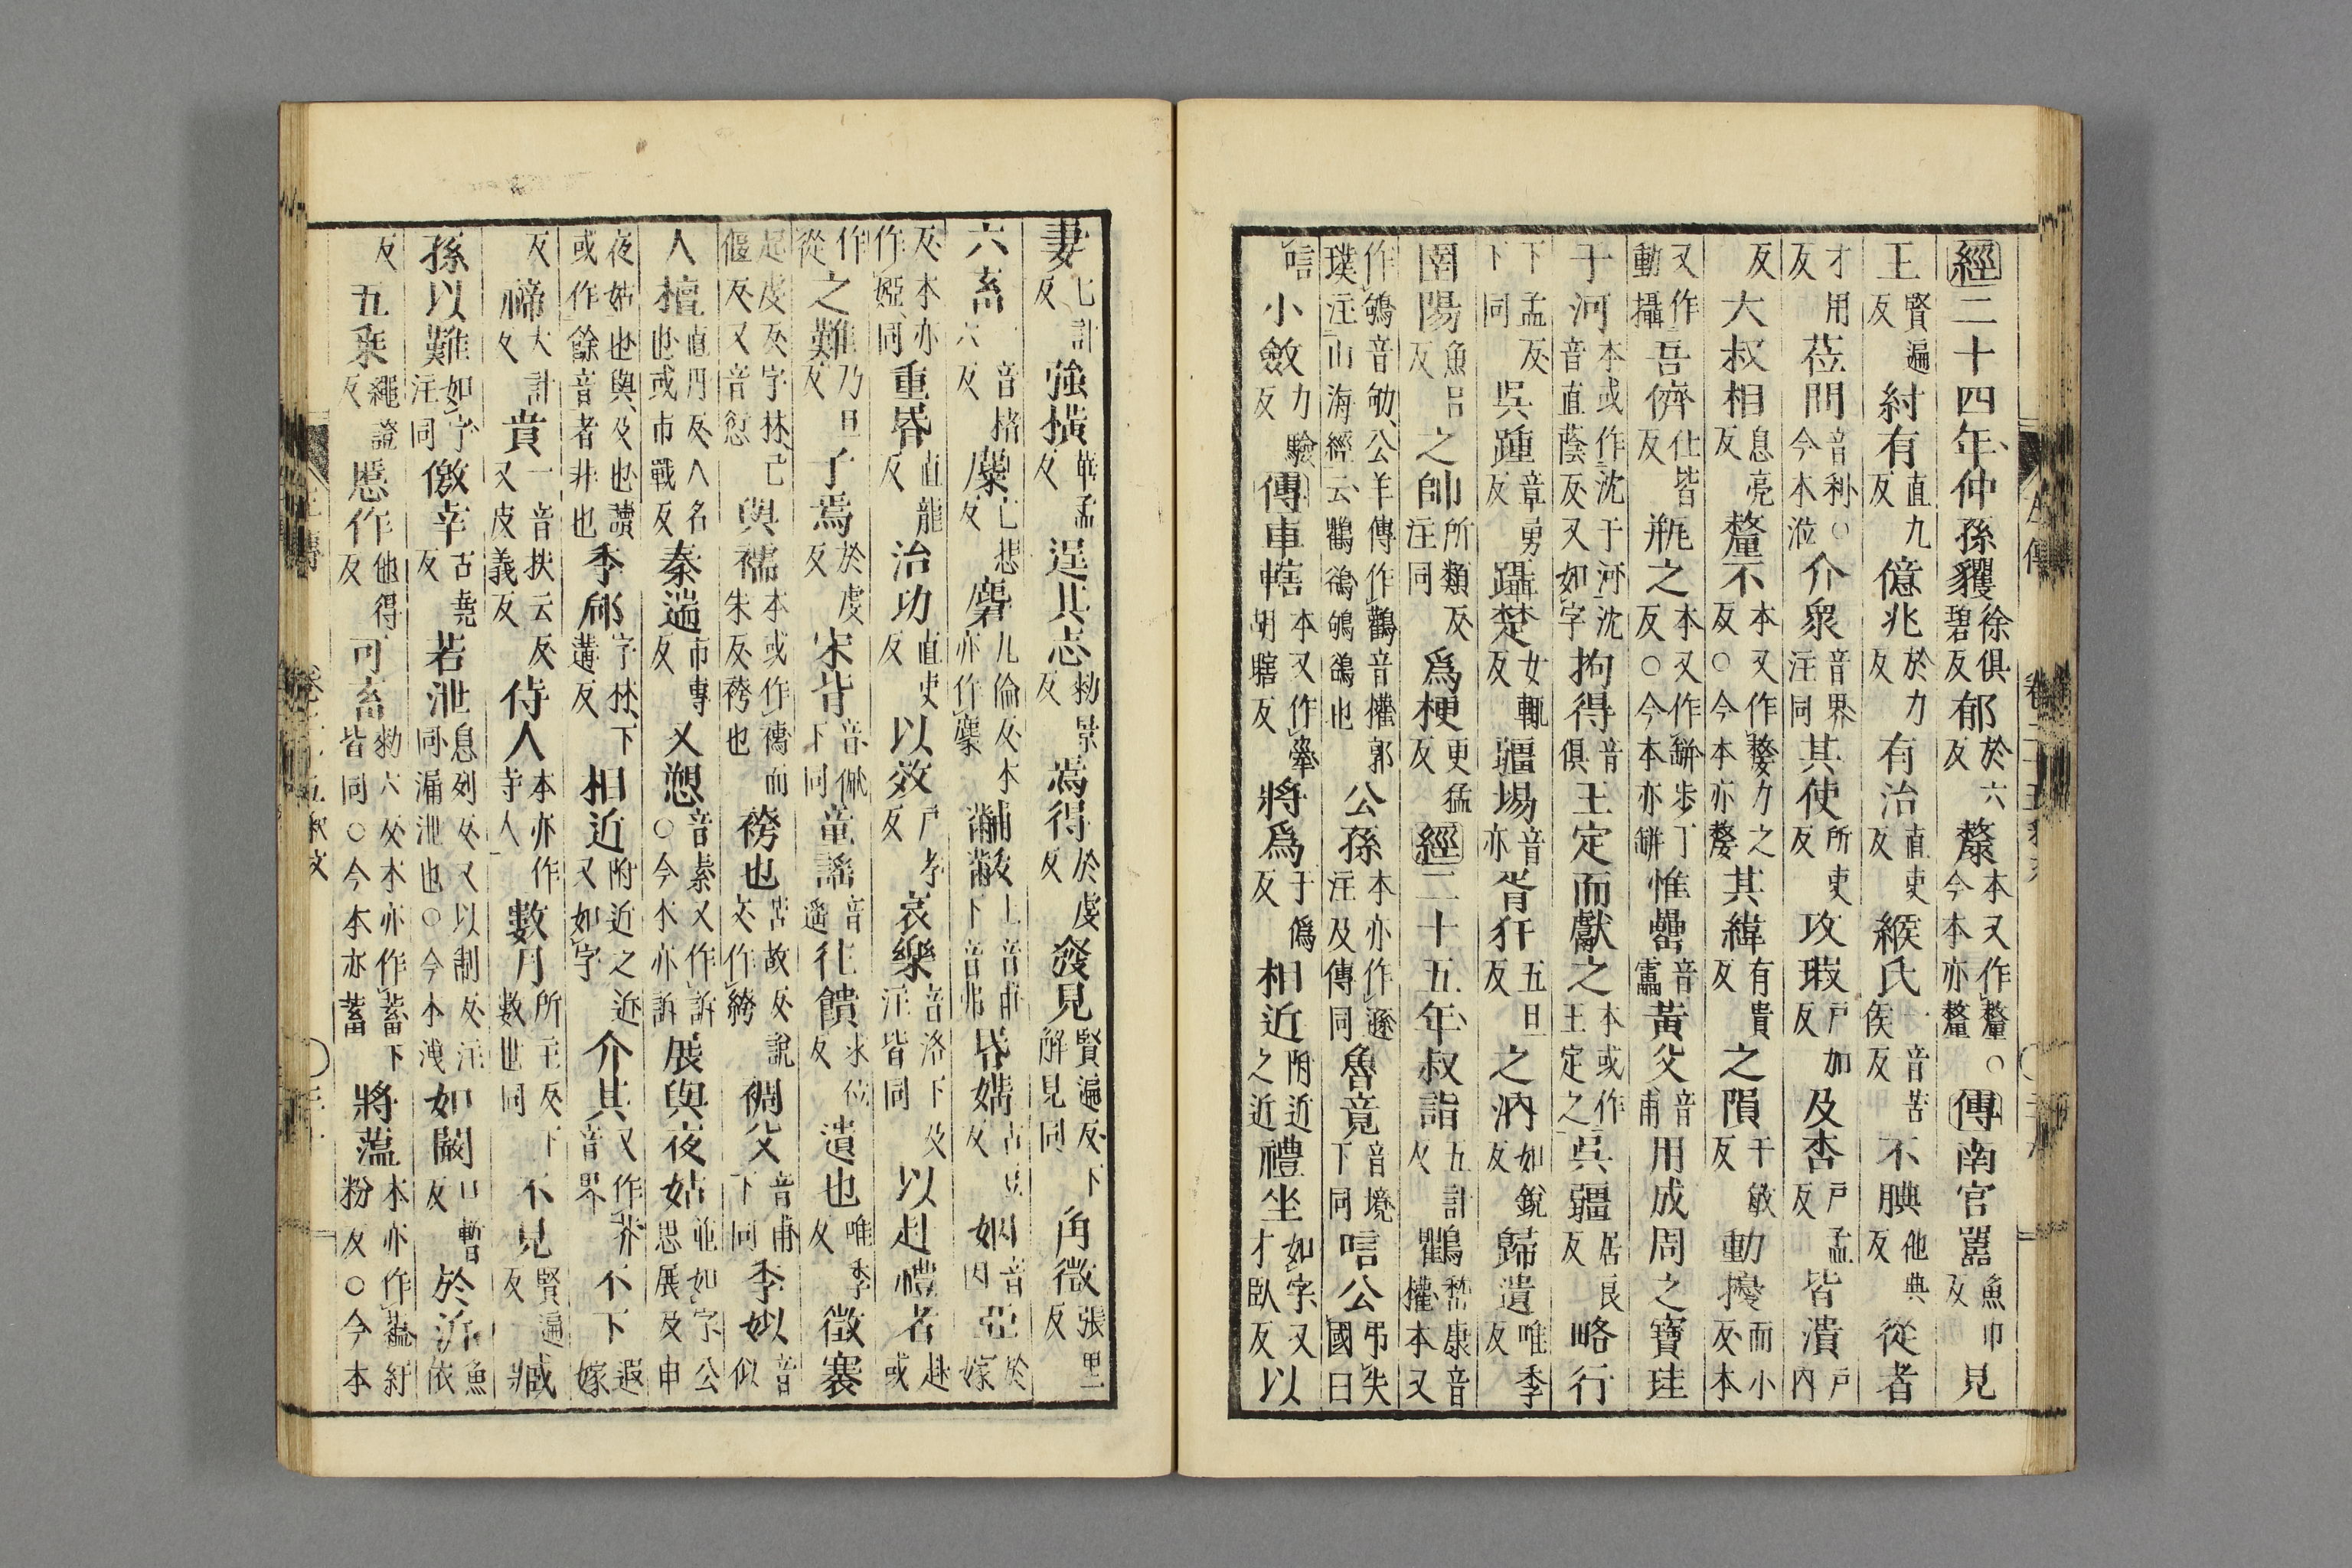 經二十四年仲孫貜徐俱碧反郁於六反犛本又作釐○今本亦釐傳南宮嚚魚巾反見
王賢遍反紂有直九反億兆於力反有治直吏反緱氏音苦侯反不腆他典反從者
才用反莅問音利○今本涖介衆音界注同其使所吏反攻瑕戶加反及杏戶孟反皆潰戶內
反大叔相息亮反釐不本又作嫠力之反○今本亦嫠其緯有貴反之隕于敏反動擾而小反本
又作動攝吾儕仕皆反瓶之本又作缾步丁反○今本亦缾惟罍音靁黃父音甫用成周之寶珪
于河本或作沈于河沈音直蔭反又如字拘得音俱王定而獻之本或作王定之吳疆居良反略行
下孟反下同吳踵章勇反躡楚女輒反疆埸音亦胥犴五旦反之汭如銳反歸遺唯季反
圉陽魚呂反之帥所類反注同爲梗更猛反經二十五年叔詣五計反鸜嵆康音權本又
作鴝音劬公羊傳作鸛音權郭璞注山海經云鸜鵒鴝鵒也公孫本亦作遜注及傳同魯竟音境下同唁公弔失國曰
唁小斂力驗反傳車轄本又作舝胡瞎反將爲于僞反相近附近之近禮坐如字又才臥反以
妻七計反強橫華孟反逞其志勑景反焉得於虔反發見賢遍反下解見同角徵張里反
六畜音格六反麋亡悲反麕九倫反本亦作麇黼黻上音甫下音弗昏媾古豆反姻音因亞於嫁
反本亦作婭同重昬直龍反治功直吏反以效戶孝反哀樂音洛下及注皆同以赴禮者赴或
作從之難乃旦反子焉於虔反宋背音佩下同童謠音遙往饋求位反遺也唯季反徵褰
起虔反字林己偃反又音愆與襦本或作襦而朱反袴也袴也苦故反說文作絝裯父音甫下同季姒音似
人檀直丹反人名也或市戰反秦遄市專反又愬音素又作訴○今本亦訴展與夜姑並如字公思展及申
夜姑也與及也讀或作餘音者非也季郈字林下遘反相近附近之近又如字介其又作芥音界不下遐嫁
反禘大計反賁一音扶云反又皮義反侍人本亦作寺人數月所主反下數世同不見賢遍反臧
孫以難如字注同儌幸古堯反若泄息列反又以制反注同漏泄也○今本洩如闞口暫反於沂魚依
反五乘繩證反慝作他得反可畜勑六反本亦作蓄下皆同○今本亦蓄將薀本亦作蘊紆粉反○今本